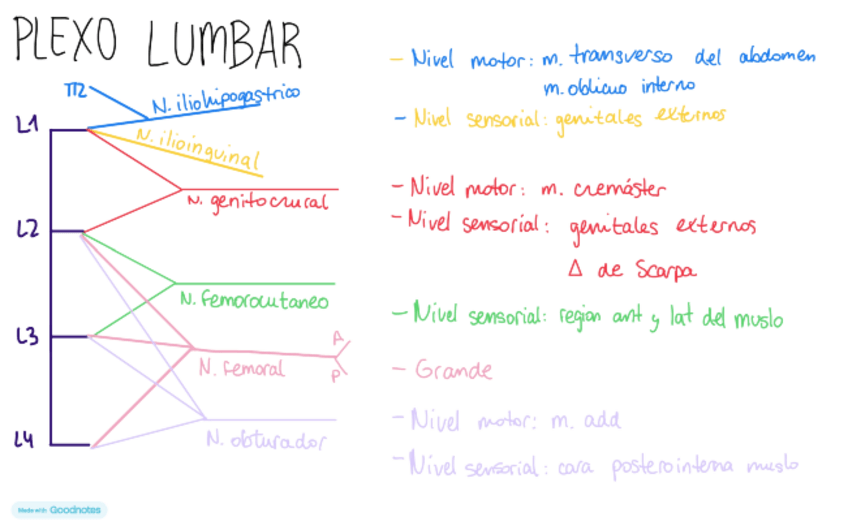 PLEXO LUMBAR
T12
N. iliohipogastrico
L1
N. ilioinguinal
N. genitocrural
L2
N. femorocutaneo
L3
A
N. femoral
P
L4
N. obturador
- Nivel motor: m. transverso del abdomen
m. oblicuo interno
- Nivel sensorial: genitales externos
- Nivel motor: m. cremáster
- Nivel sensorial: genitales externos
Δ de Scarpa
- Nivel sensorial: region ant y lat del muslo
- Grande
- Nivel motor: m. add
- Nivel sensorial: cara posterointerna muslo
Made with Goodnotes